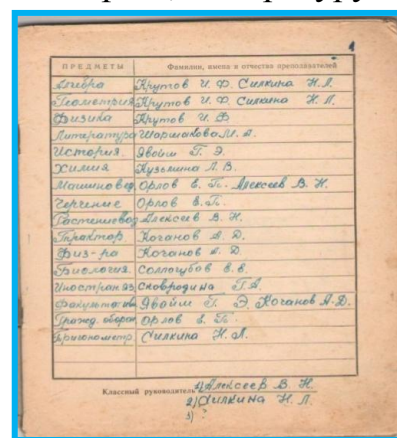 1
ПРЕДМЕТЫ Фамилии, имена и отчества преподавателей
Алгебра Крутов И. Ф. Силкина Н. Л.
Геометрия Крутов И. Ф. Силкина Н. Л.
Физика Крутов И. Ф.
Литература Шаршакова М. А.
История Явойм Г. Э.
Химия Кузьмина Л. В.
Машиновед. Орлов Е. П. Алексеев В. Н.
Черчение Орлов Е. П.
Растениевод Алексеев В. Н.
Трактор Коганов А. Д.
Физ-ра Коганов А. Д.
Биология Е. Е.
Иностран яз Сковродина Г. А.
Факультатив Явойм Г. Э. Коганов А. Д.
Гражд. оборон Орлов Е. П.
Тригонометр Силкина Н. Л.
Классный руководитель 1) Алексеев В. Н.
2) Силкина Н. Л.
3) ?